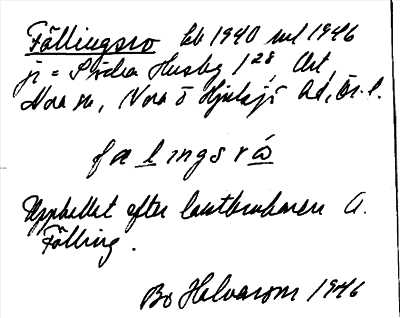 Fällingsro lb 1940 nul 1946
jr = Södra Husby 1²⁸, Art,
Nora sn, Nora o Hjulsjö Ad, Ör. l.
fælıngsrω
Uppkallat efter lantbrukaren A.
Fälling.
Bo Halvarson 1946